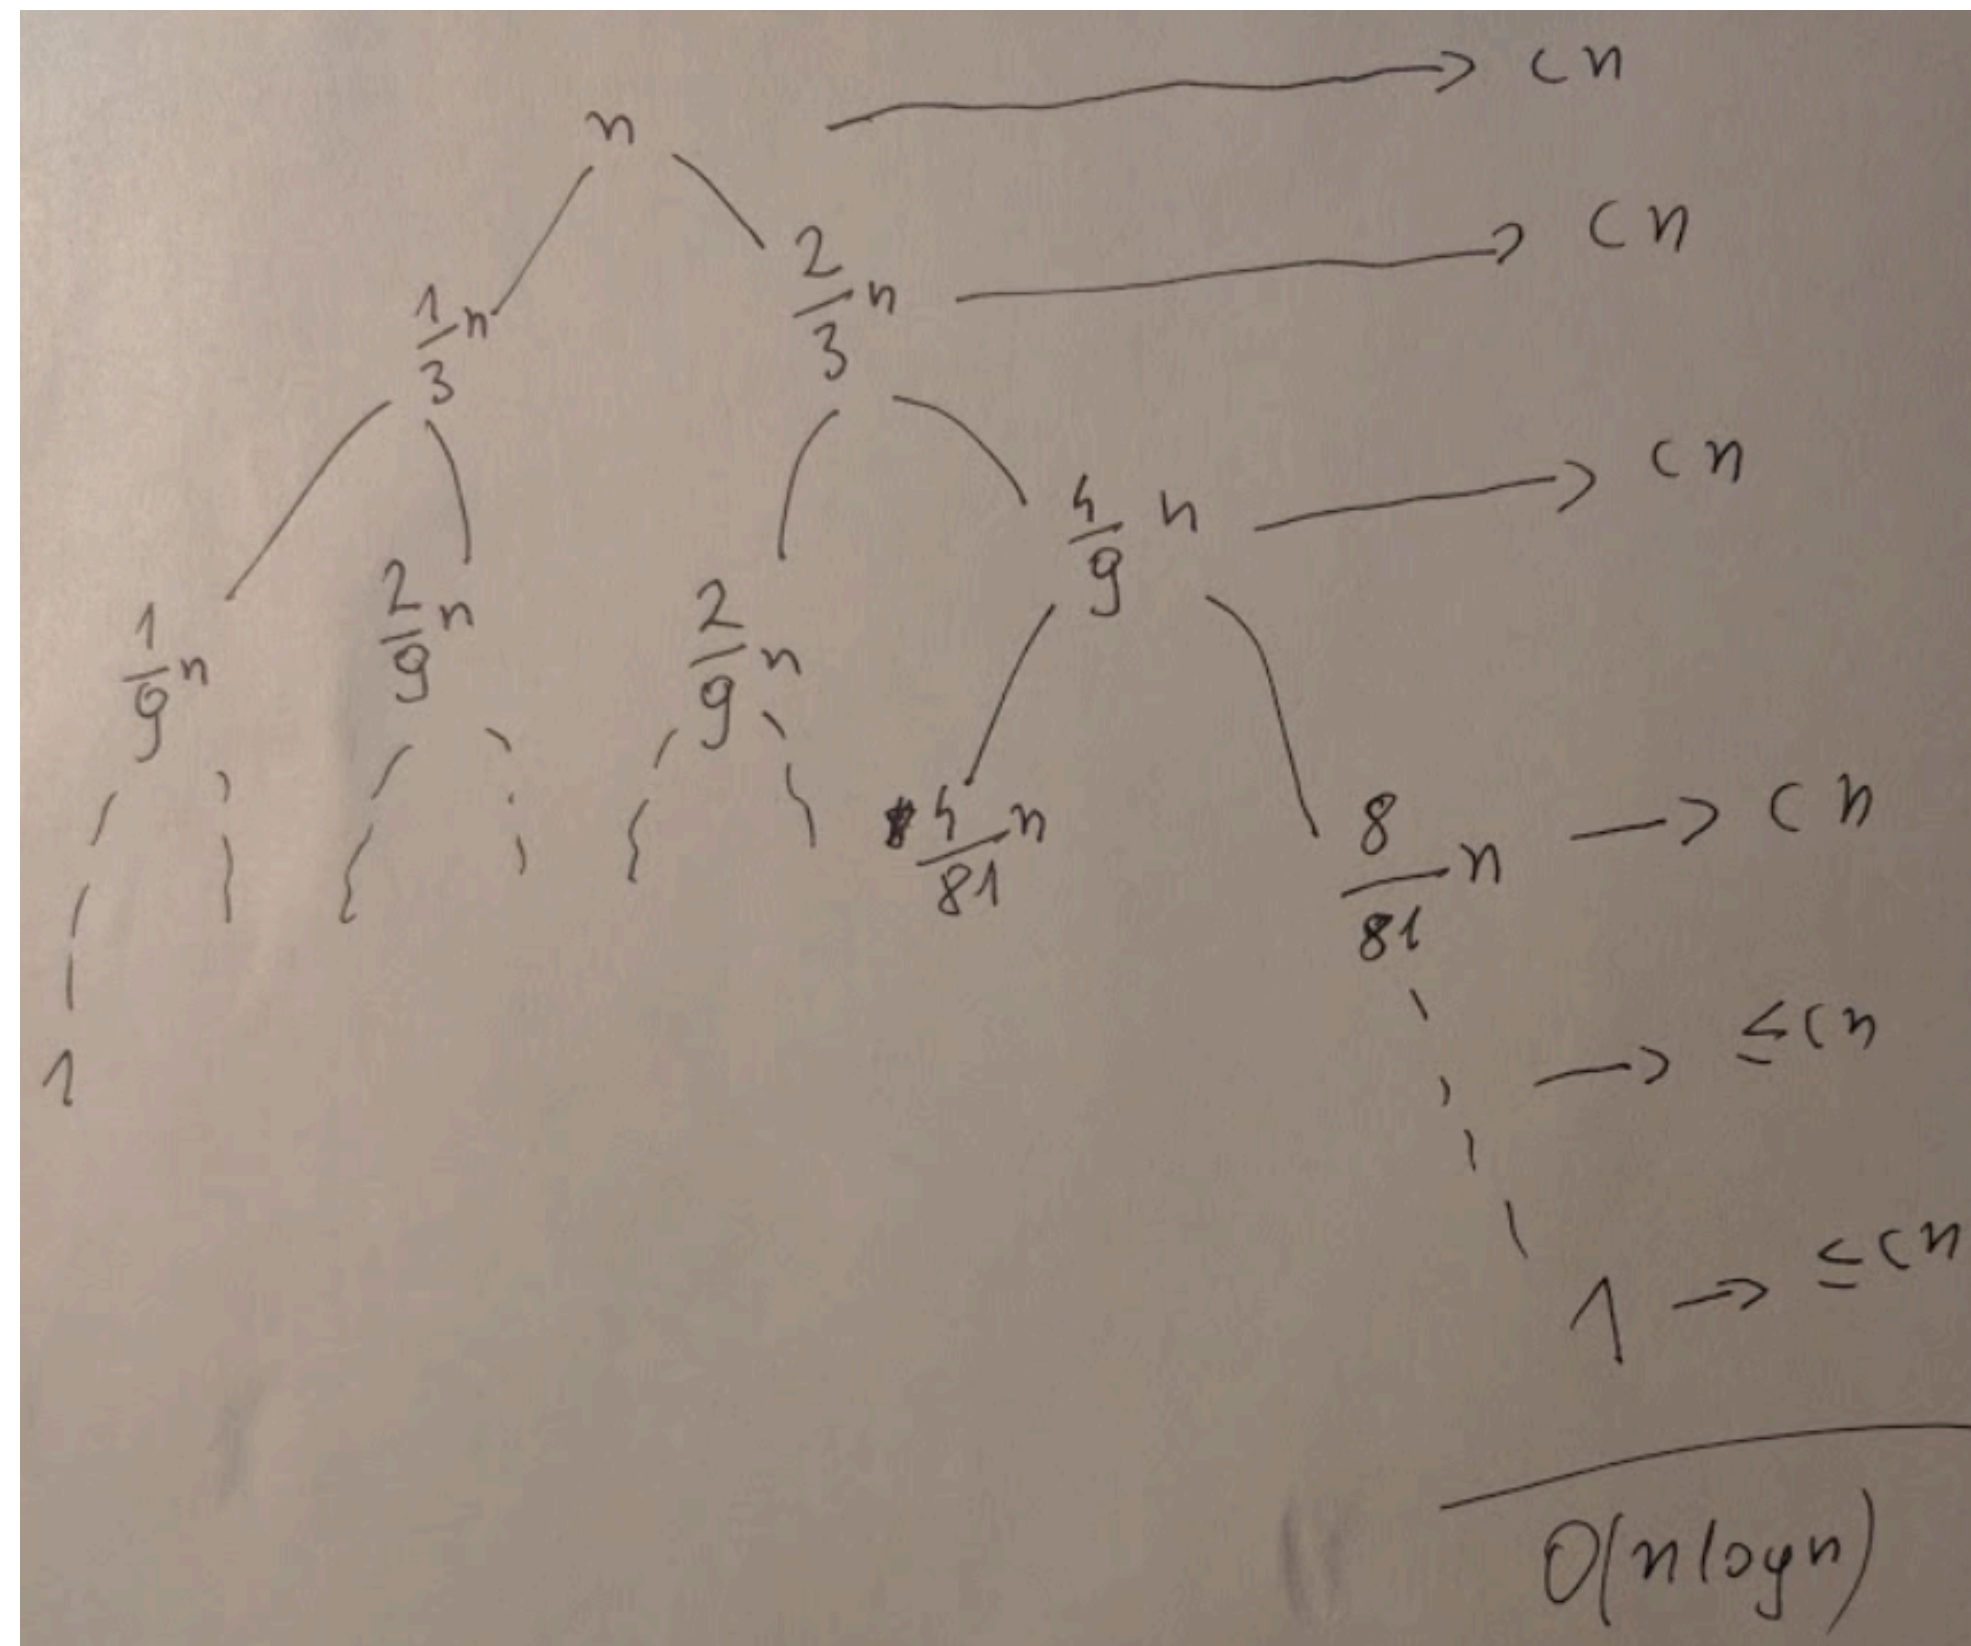 n → cn
1/3 n 2/3 n → cn
1/9 n 2/9 n 2/9 n 4/9 n → cn
4/81 n 8/81 n → cn
→ ≤cn
1
1 → ≤cn
O(nlogn)